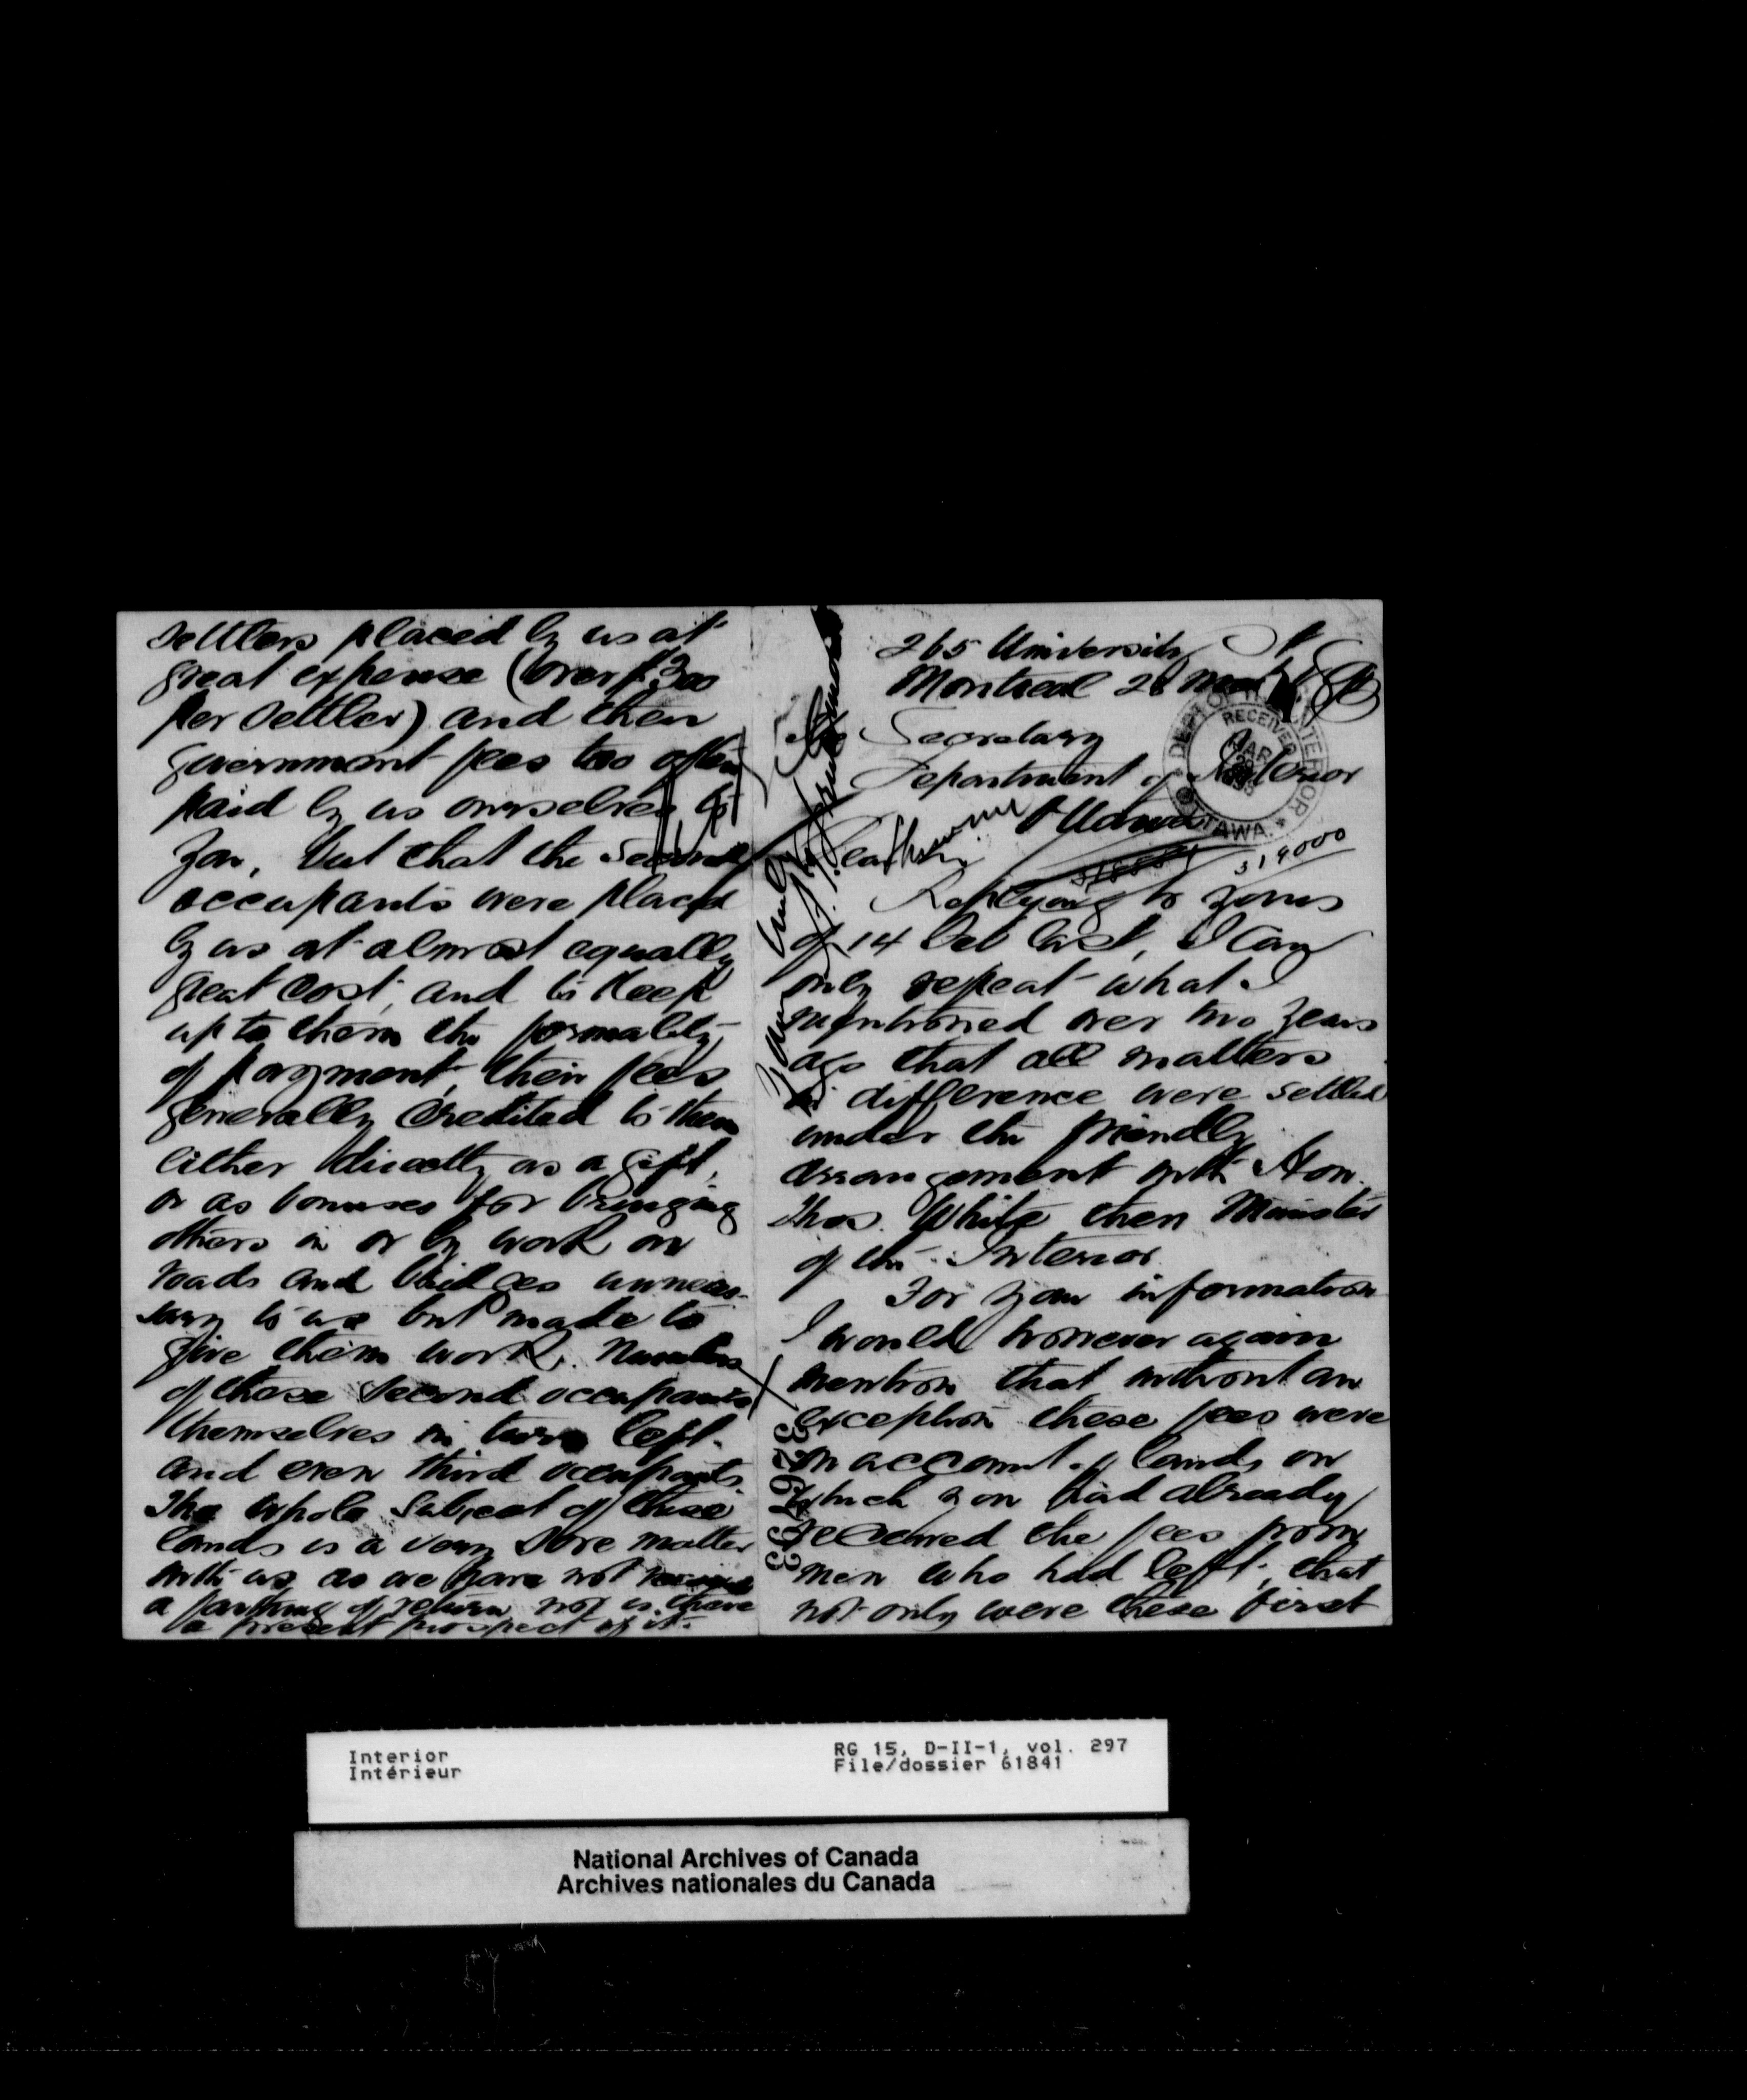 265 University St
Montreal 28 Mar
The Secretary
Department of Interior
Ottawa
Dear Sir
319000
Replying to yours
of 14 Oct last, I can
only repeat what I
mentioned over two years
ago that all matters
in difference were settled
under the friendly
arrangement with Hon.
Thos. White then Minister
of the Interior
For your information
I would however again
mention that without an
exception these fees were
on account of lands on
which you had already
received the fees from
men who had left, that
not only were these first
settlers placed by us at
great expense (over $300
per settler) and then
government fees too often
paid by us ourselves to
you, but that the second
occupants were placed
by us at almost equally
great cost, and to keep
up to them the formality
of payment, their fees
generally credited to them
either directly as a gift,
or as bonuses for bringing
others in or by work on
roads and bridges unneces-
sary to us but made to
give them work. Numbers
of these second occupants
themselves in turn left
and even third occupants.
The whole subject of these
lands is a very sore matter
with us as we have not received
a farthing of return nor is there
a present prospect of it.
Yours truly
326793
DEPT OF INTERIOR
RECEIVED
MAR
OTTAWA
Interior
Intérieur
RG 15, D-II-1, vol. 297
File/dossier 61841
National Archives of Canada
Archives nationales du Canada